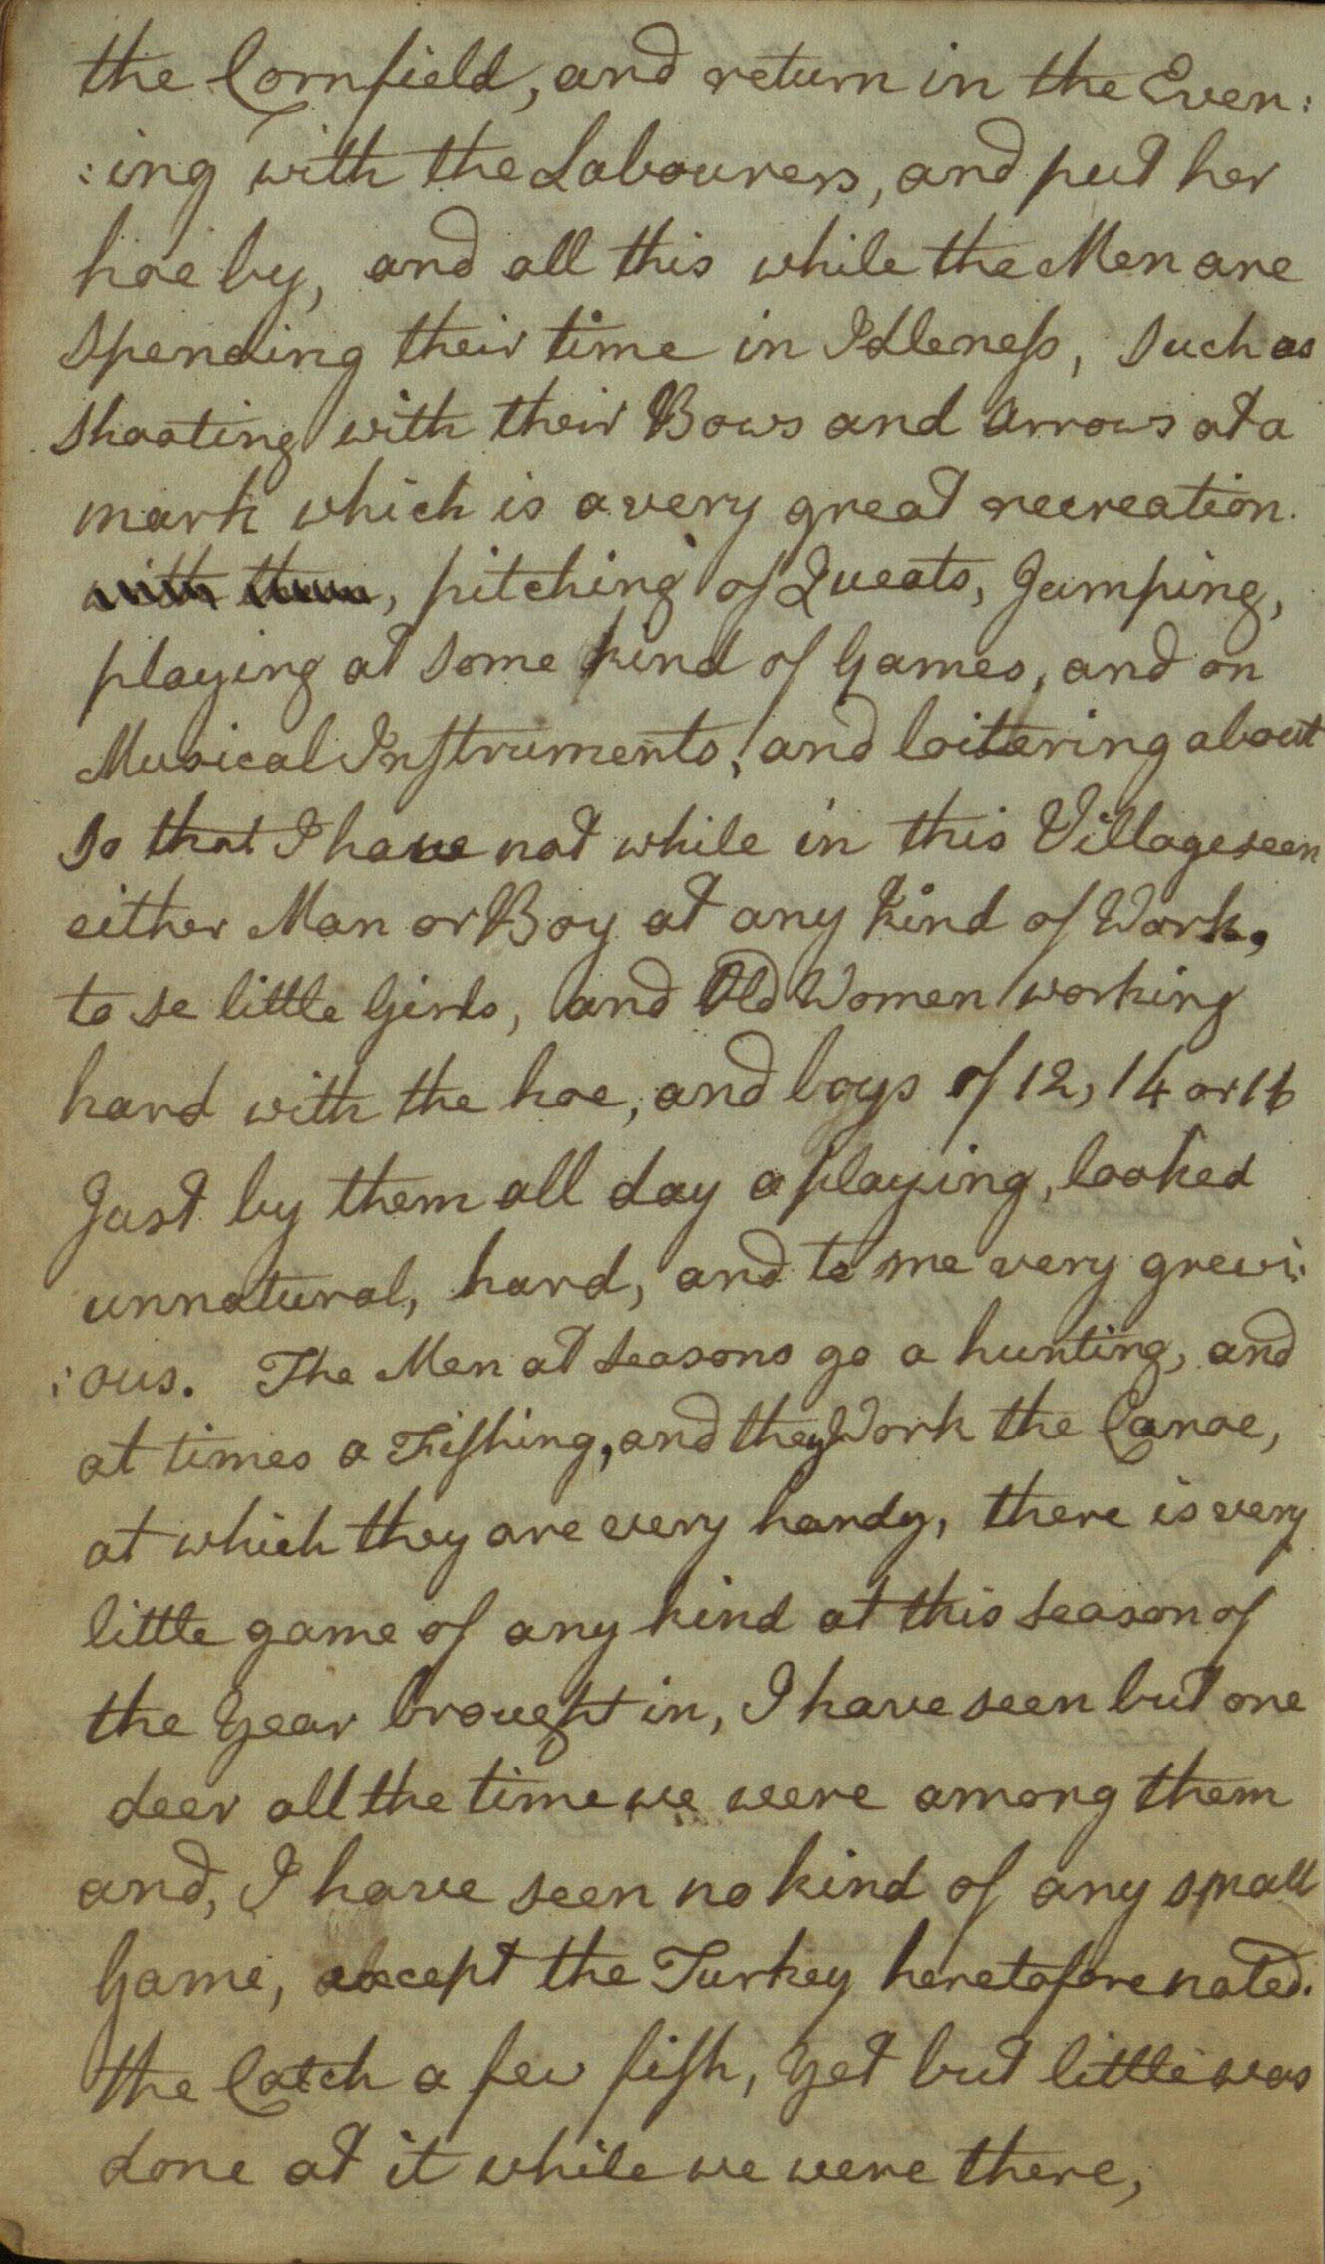 the Cornfield, and return in the Even:
:ing with the Labourers, and put her
hoe by, and all this while the Men are
Spending their time in Idleneſs, Such as
Shooting with their Bows and Arrows at a
mark which is a very great recreation.
with them, pitching of Queats, Jumping,
playing at Some kind of Games, and on
Musical Inſtruments, and loitering about
So that I have not while in this Village seen
either Man or Boy at any Kind of Work,
to se little Girls, and Old Women working
hard with the hoe, and boys of 12, 14 or 16
Just by them all day a playing, looked
unnatural, hard, and to me very grevi:
:ous. The Men at Seasons go a hunting, and
at times a Fiſhing, and they Work the Canoe,
at which they are very hardy, there is very
little game of any kind at this Season of
the Year brought in, I have seen but one
deer all the time we were among them
and, I have seen no kind of any small
Game, except the Turkey heretofore noted.
the Catch a few fiſh, Yet but little was
done at it while we were there,